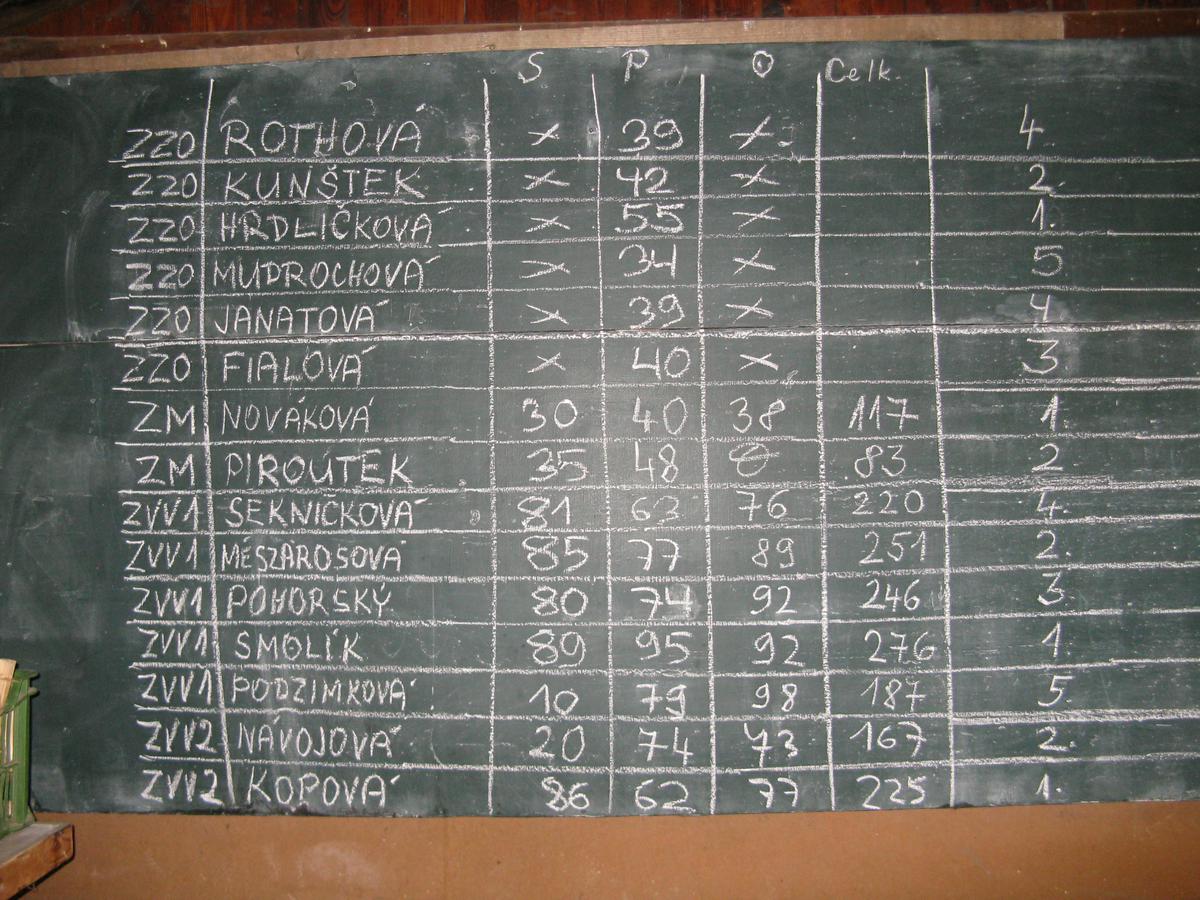 S P O Celk.
ZZO ROTHOVÁ x 39 x 4.
ZZO KUNŠTEK x 42 x 2.
ZZO HRDLIČKOVÁ x 55 x 1.
ZZO MUDROCHOVÁ x 34 x 5
ZZO JANATOVÁ x 39 x 4
ZZO FIALOVÁ x 40 x 3
ZM NOVÁKOVÁ 30 40 38 117 1.
ZM PIROUTEK 35 48 0 83 2
ZVV1 SEKNIČKOVÁ 81 63 76 220 4.
ZVV1 MESZAROSOVÁ 85 77 89 251 2.
ZVV1 POHORSKÝ 80 74 92 246 3.
ZVV1 SMOLÍK 89 95 92 276 1
ZVV1 PODZIMKOVÁ 10 79 98 187 5.
ZVV2 NÁVOJOVÁ 20 74 73 167 2.
ZVV2 KOPOVÁ 86 62 77 225 1.